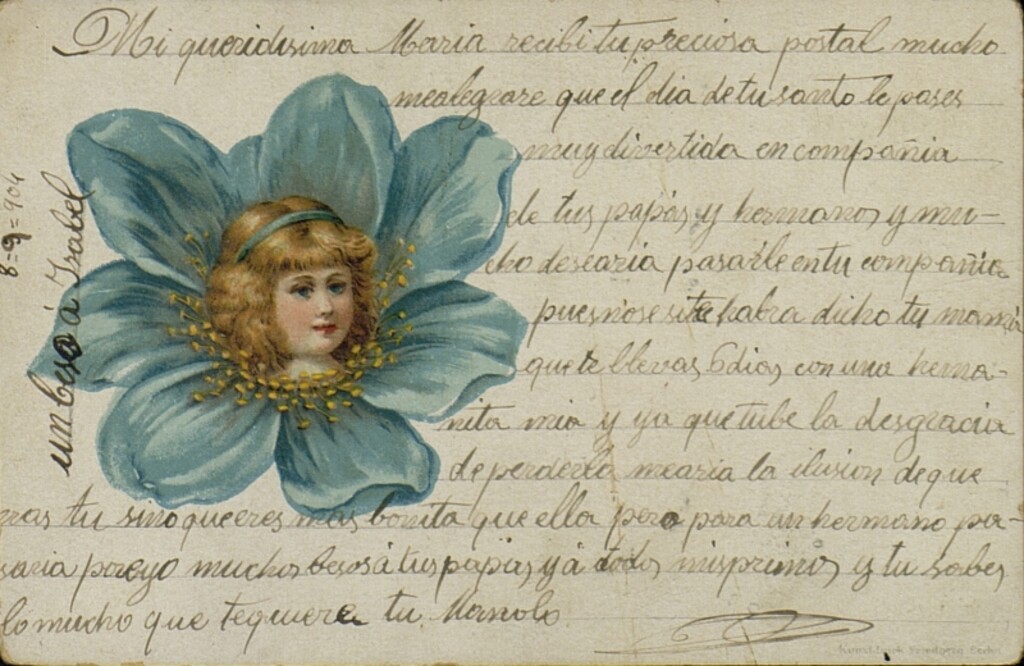 Mi queridisima Maria recibi tu preciosa postal mucho
mealegrare que el dia de tu santo le pases
muy divertida en compañia
de tus papás y hermanos y mu-
cho desearia pasarle en tu compañia
pues nose si te habra dicho tu mamá
que te llevas 6 dias con una herma-
nita mia y ya que tube la desgracia
de perderla mearia la ilusion de que
eras tu sino que eres mas bonita que ella pero para un hermano pa-
saria por eyo muchos besos á tus papás y á todos mis primos y tu sabes
lo mucho que te quiere tu Manolo
un beso á Isabel
8-9=904